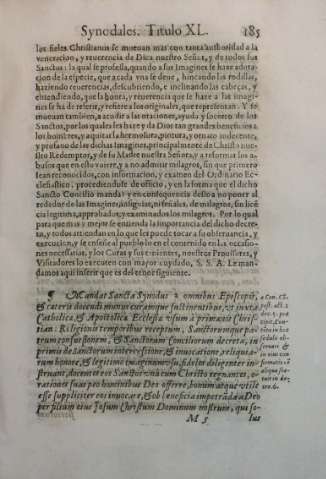 Synodales. Titulo XL. 185
los fieles Christianos se mueuan mas con tanta authoridad a la
veneracion, y reuerencia de Dios, nuestra Señora, y de todos sus
Sanctos: la qual se professa, quando a sus Imagines se haze adora-
cion de la especie, que a cada vna se deue, hincando las rodillas,
haziendo reuerencias, descubriendo, e inclinando las cabeças, y
entendiendo, que la honra, y reuerencia que se haze a las imagi-
nes se ha de referir, y refiere a los originales, que representan. Y se
mueuan tambien, a acudir a las oraciones, ayuda y socorro de los
Sanctos, por los quales les haze y da Dios tan grandes beneficios a
los hombres, y a quitar la hermosura, pictura, y ornato indecente,
y profano de las dichas Imagines, principalmente de Christo nue-
stro Redemptor, y de su Madre nuestra Señora, y a reformar los a-
busos que en esto vuiere, y a no admitir milagros, sin que primero
sean reconocidos, con informacion, y examen del Ordinario Ec-
clesiastico, procediendose de officio, y en la forma que el dicho
Sancto Concilio manda: y en consequencia desto a no poner al
rededor de las Imagines, insignias, ni señales, de milagros, sin lic̄
cia legitima, approbados, y examinados los milagros. Por lo qual
para que mas y mejor se entienda la importancia del dicho decre-
to, y todos sepan, en lo que les puede tocar a su obseruancia, y
execucion, y se enseñe al pueblo lo en el contenido en las occasio-
nes necessarias, y los Curas y sus tenientes, nuestros Prouisores, y
Visitadores lo executen con mayor cuydado, S. S. A. le man-
damos aqui inserir que es del tenor siguiente.
¶ Mandat Sancta Synodus 2 omnibus Episcopis,
& cæteris docendi munus curamque sustinentibus, vt iuxta
Catholicæ, & Apostolicæ Ecclesiæ vsum a primæuis Christi-
anæ Religionis temporibus receptum, Sanctorumque pa-
trum consensionem, & Sanctorum Conciliorum decreta, in
primis de Sanctorum intercessione, & inuocatione, reliquia-
rum honore, & legitimo imaginum vsu, fideles diligenter in-
struant, docentes eos Sanctos vna cum Christo regnantes, o-
rationes suas pro hominibus Deo offerre, bonum atque vtile
esse suppliciter eos inuocare, & ob beneficia impetranda a Deo
per filium eius Iesum Christum Dominum nostrum, qui so-
M 5 lus